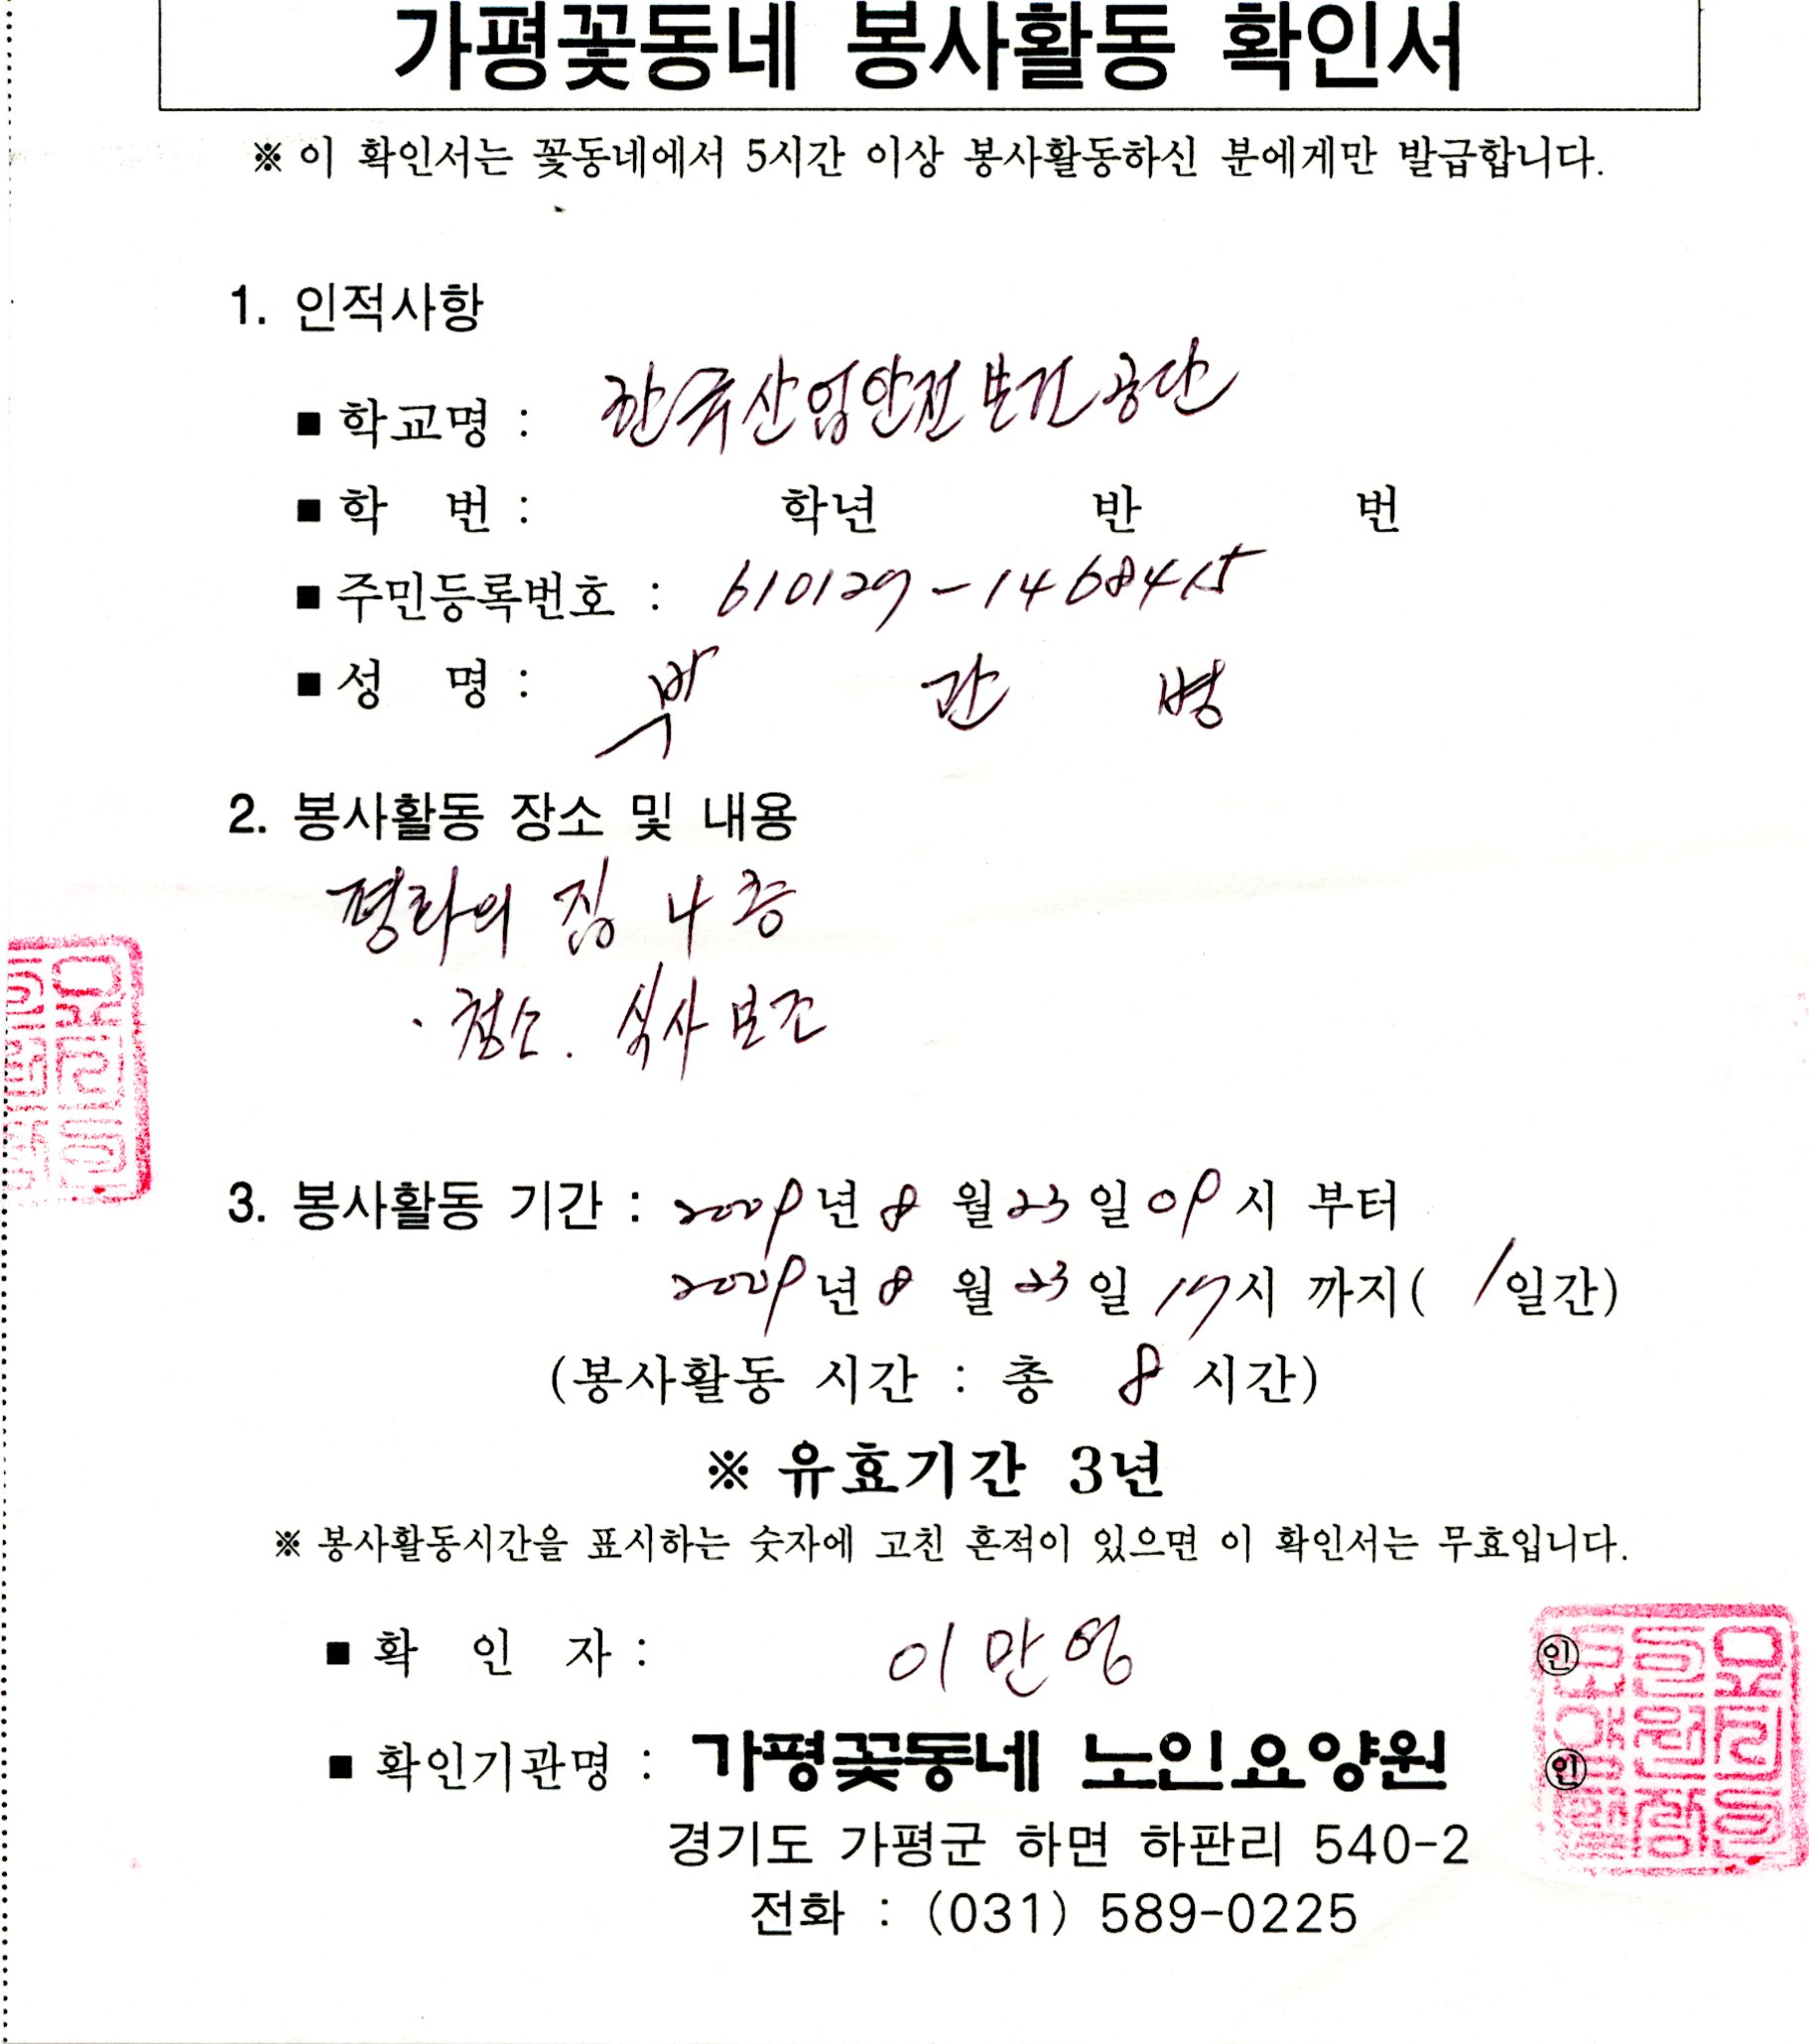 가평꽃동네 봉사활동 확인서
※ 이 확인서는 꽃동네에서 5시간 이상 봉사활동하신 분에게만 발급합니다.
1. 인적사항
■ 학교명 : 한국산업안전보건공단
■ 학 번 : 학년 반 번
■ 주민등록번호 : 610129-1468415
■ 성 명 : 박 관 병
2. 봉사활동 장소 및 내용
평화의 집 4층
· 청소. 식사보조
3. 봉사활동 기간 : 2009년 8월 23일 09시 부터
2009년 8월 23일 17시 까지( 1일간)
(봉사활동 시간 : 총 8 시간)
※ 유효기간 3년
※ 봉사활동시간을 표시하는 숫자에 고친 흔적이 있으면 이 확인서는 무효입니다.
■ 확 인 자 : 이만영 ㊞
■ 확인기관명 : 가평꽃동네 노인요양원 ㊞
경기도 가평군 하면 하판리 540-2
전화 : (031) 589-0225